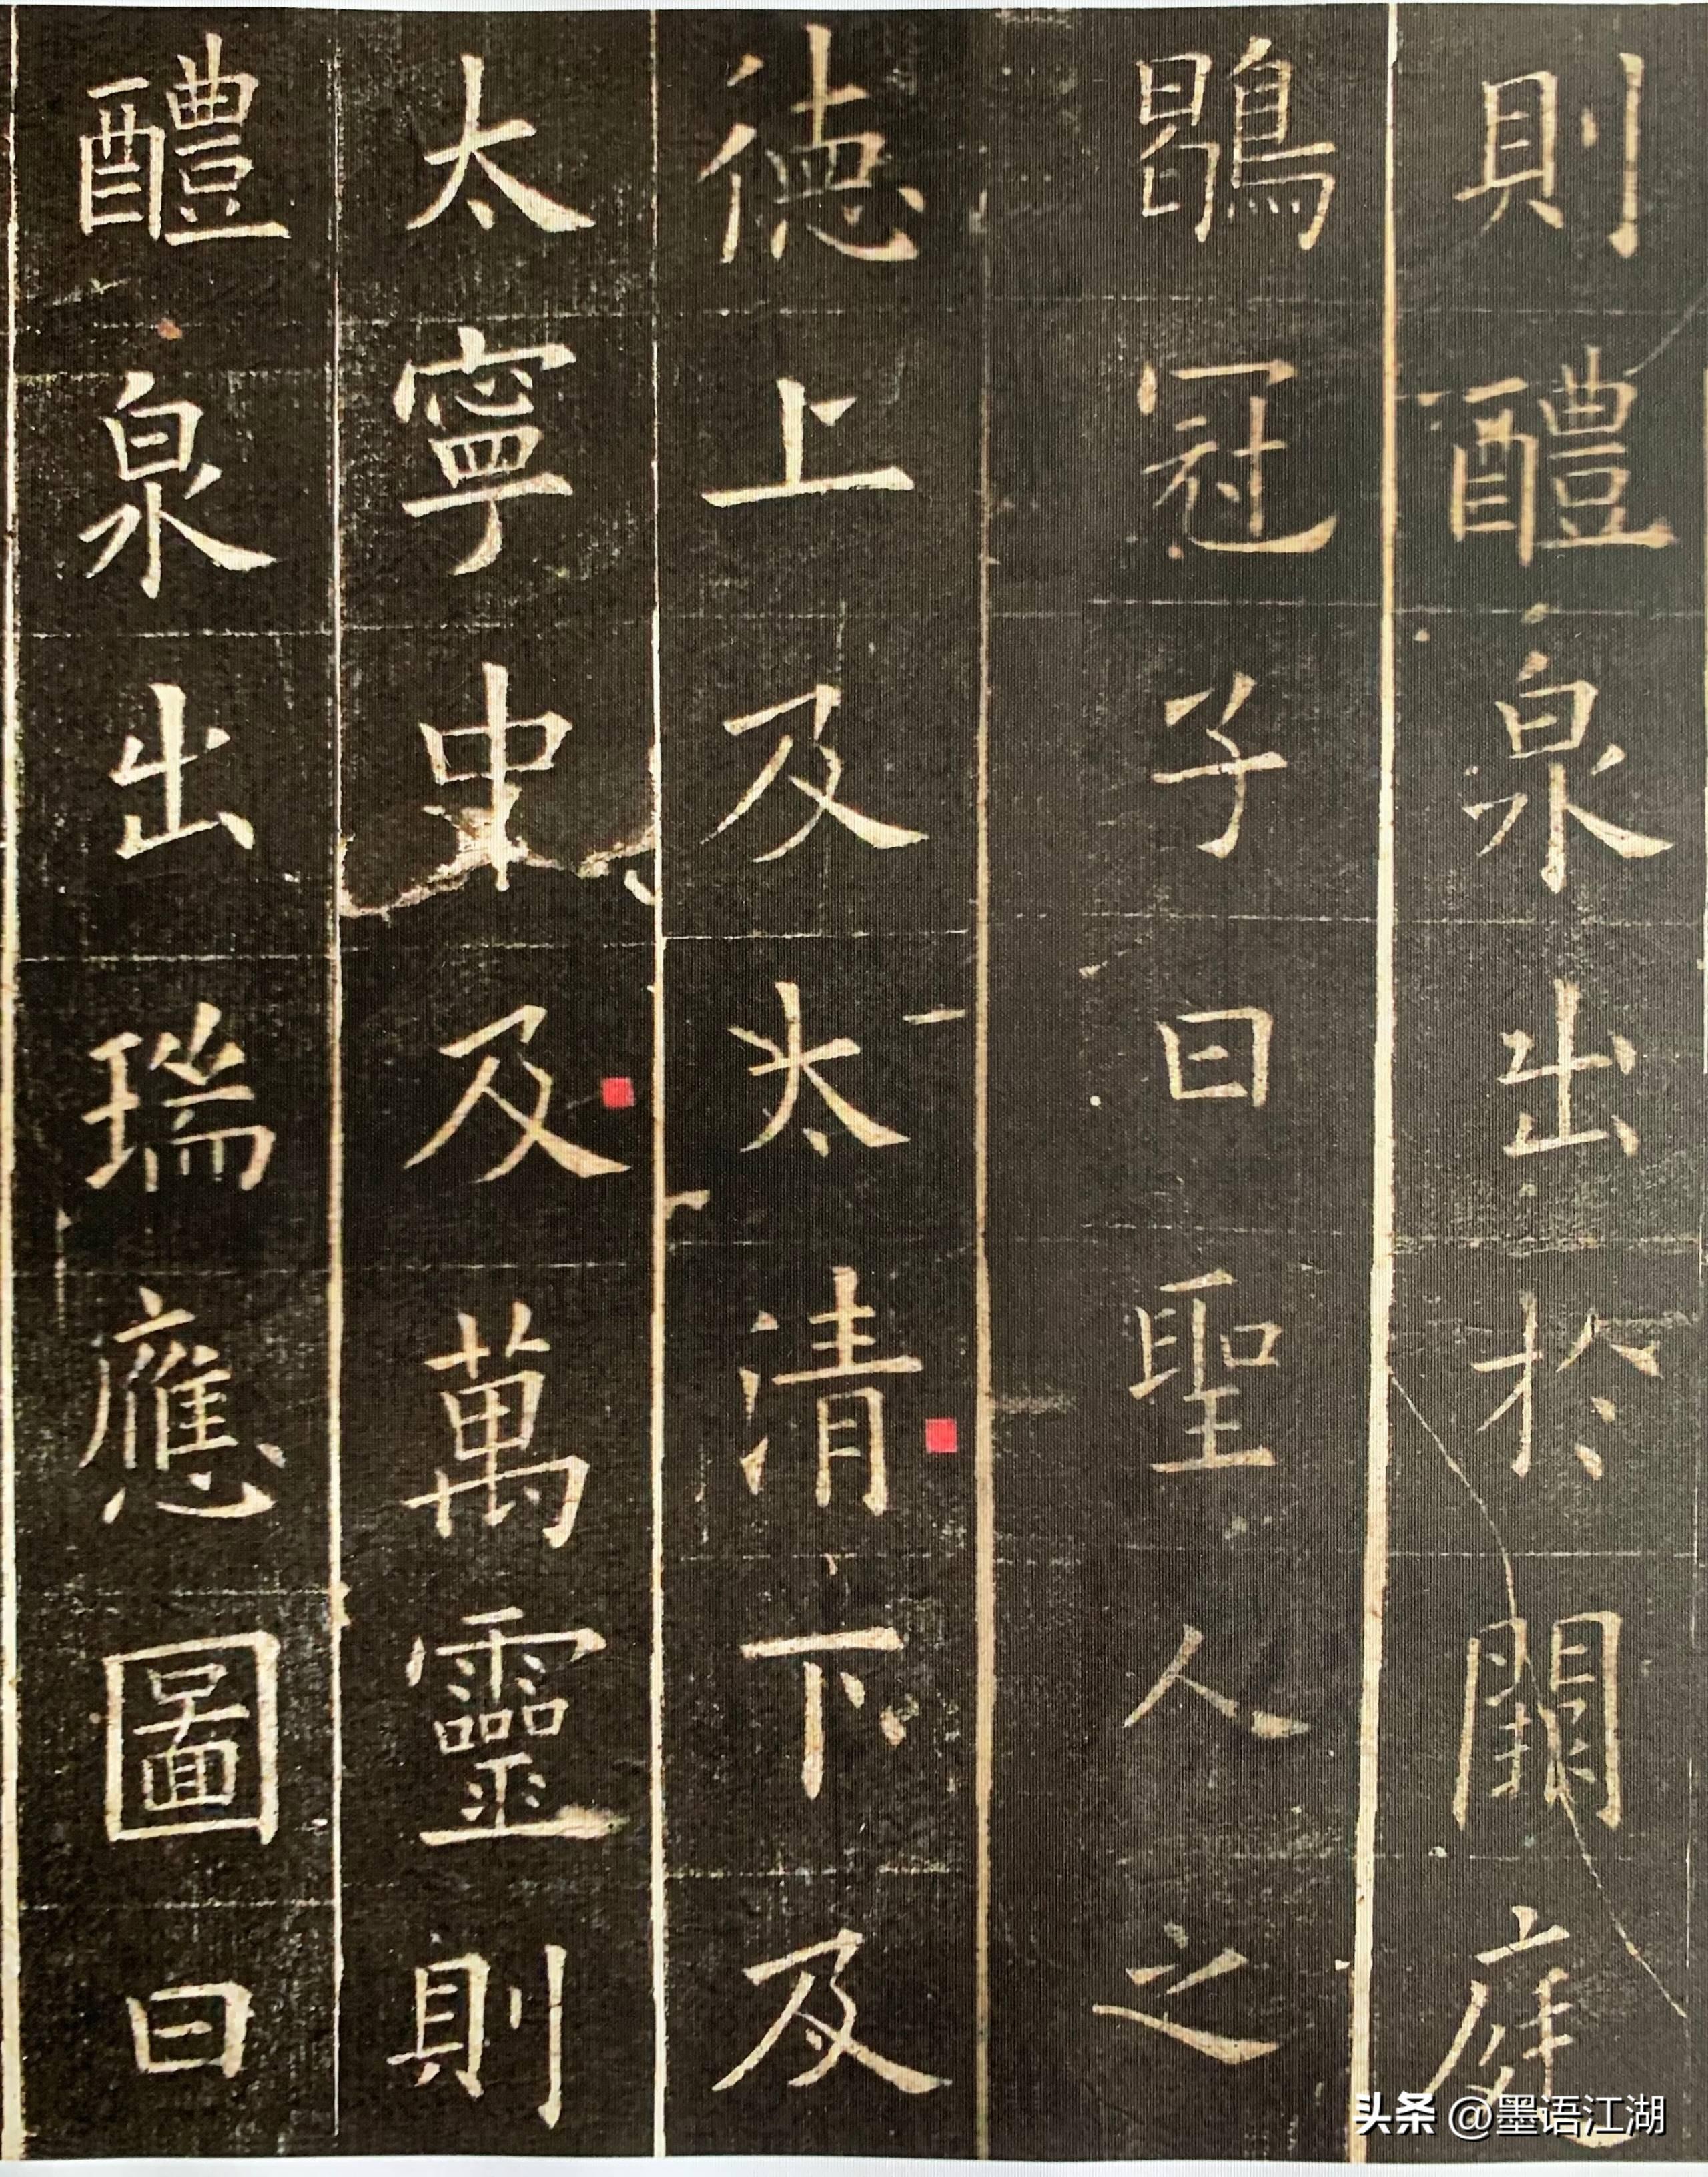 則醴泉出於闕庭
鶡冠子曰聖人之
德上及太清下及
太寧中及萬靈則
醴泉出瑞應圖曰
头条 @墨语江湖